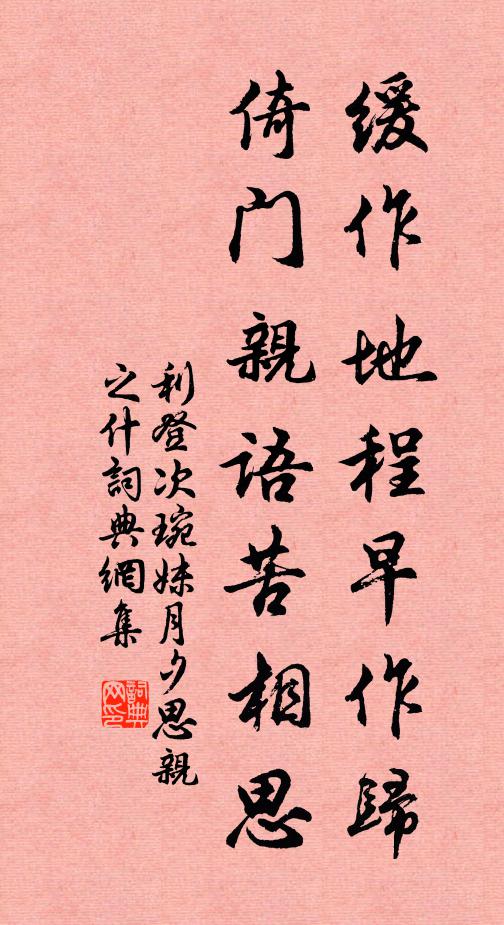 缓作地程早作歸
倚门親語苦相思
利登次琬妹月夕思親
之什詞典網集
詞典
网印